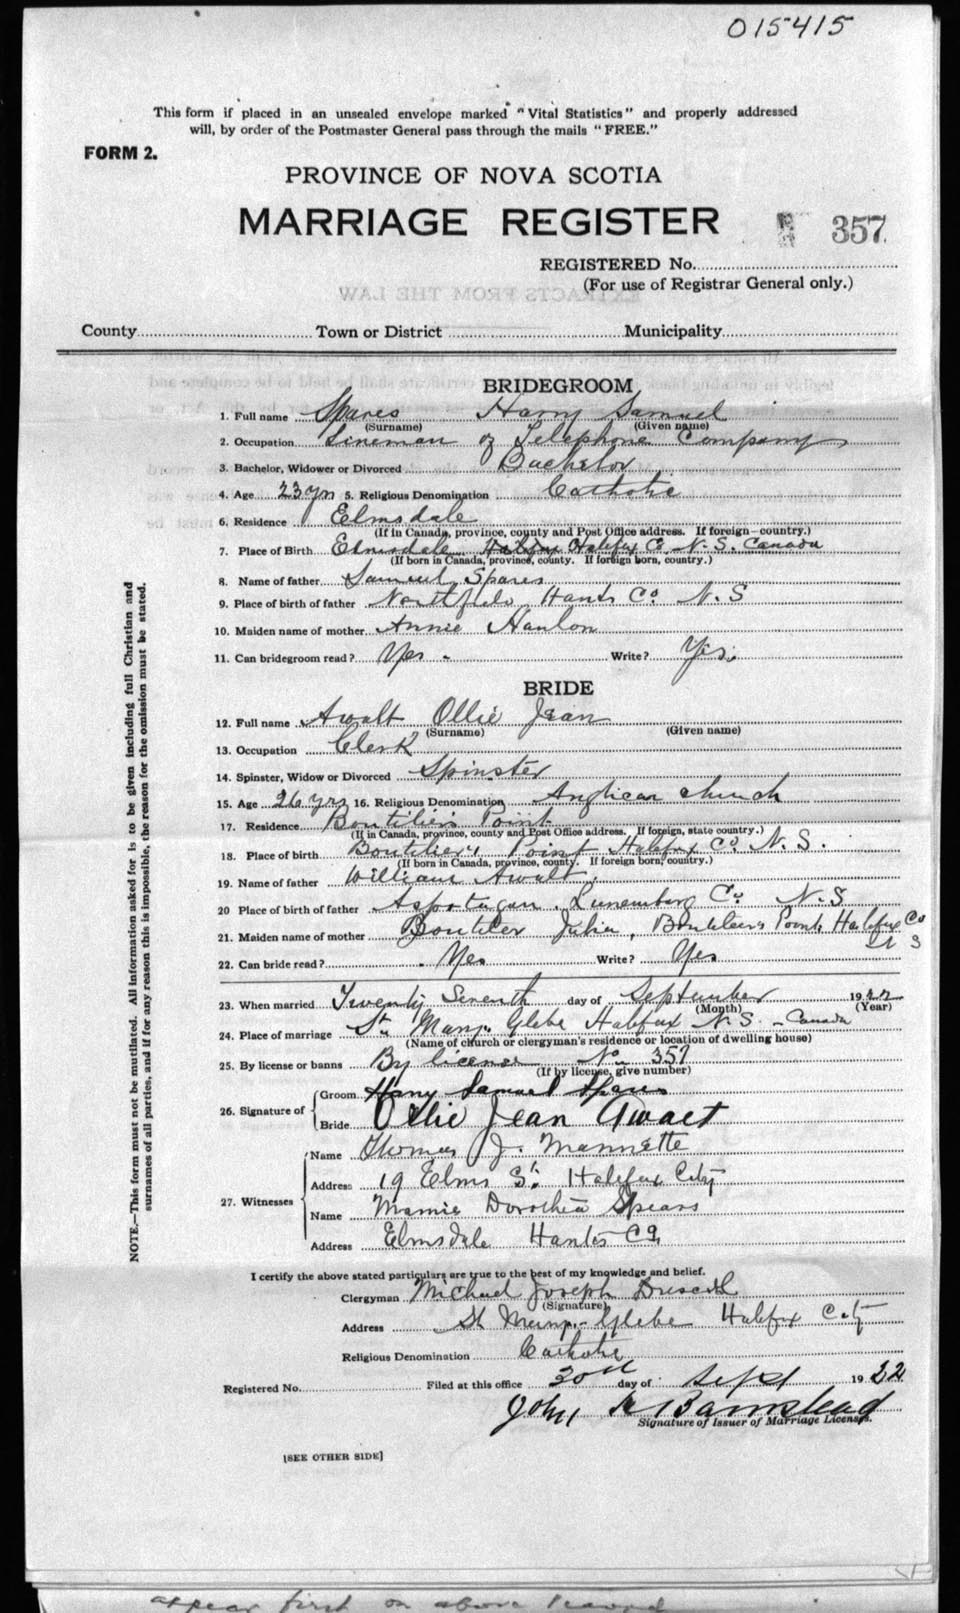 015415
This form if placed in an unsealed envelope marked "Vital Statistics" and properly addressed
will, by order of the Postmaster General pass through the mails "FREE."
FORM 2.
PROVINCE OF NOVA SCOTIA
MARRIAGE REGISTER 357
REGISTERED No.
(For use of Registrar General only.)
EXTRACTS FROM THE LAW
County Town or District Municipality
BRIDEGROOM
1. Full name Spares Harry Samuel
(Surname) (Given name)
2. Occupation Lineman of Telephone Company
3. Bachelor, Widower or Divorced Bachelor
4. Age 23 yrs 5. Religious Denomination Catholic
6. Residence Elmsdale
(If in Canada, province, county and Post Office address. If foreign—country.)
7. Place of Birth Elmsdale Halifax Co. N.S. Canada
(If born in Canada, province, county. If foreign born, country.)
8. Name of father Samuel Spares
9. Place of birth of father Northfield Hants Co N.S
10. Maiden name of mother Annie Hanlon
11. Can bridegroom read? Yes - Write? Yes.
BRIDE
12. Full name Awalt Ollie Jean
(Surname) (Given name)
13. Occupation Clerk
14. Spinster, Widow or Divorced Spinster
15. Age 26 yrs 16. Religious Denomination Anglican church
17. Residence Boutilier's Point
(If in Canada, province, county and Post Office address. If foreign, state country.)
18. Place of birth Boutilier's Point Halifax Co N.S.
(If born in Canada, province, county. If foreign born, country.)
19. Name of father William Awalt.
20 Place of birth of father Aspotogan. Lunenburg Co N.S
21. Maiden name of mother Boutilier Julia, Boutilier's Point Halifax Co
N S
22. Can bride read? Yes Write? Yes
23. When married Twenty Seventh day of September 1922
(Month) (Year)
24. Place of marriage St. Mary's Glebe Halifax N.S. - Canada
(Name of church or clergyman's residence or location of dwelling house)
25. By license or banns By license No 357
(If by license, give number)
26. Signature of Groom Harry Samuel Spares
Bride Ollie Jean Awalt
27. Witnesses
Name Thomas J. Mannette
Address 19 Elms St. Halifax City
Name Mamie Dorothea Spears
Address Elmsdale Hants Co.
I certify the above stated particulars are true to the best of my knowledge and belief.
Clergyman Michael Joseph Driscoll
(Signature)
Address St Mary's Glebe Halifax City
Religious Denomination Catholic
Registered No. Filed at this office 30th day of Sept 1922
John Barnstead
Signature of Issuer of Marriage Licenses.
[SEE OTHER SIDE]
NOTE.—This form must not be mutilated. All information asked for is to be given including full Christian and
surnames of all parties, and if for any reason this is impossible, the reason for the omission must be stated.
appear first on above record